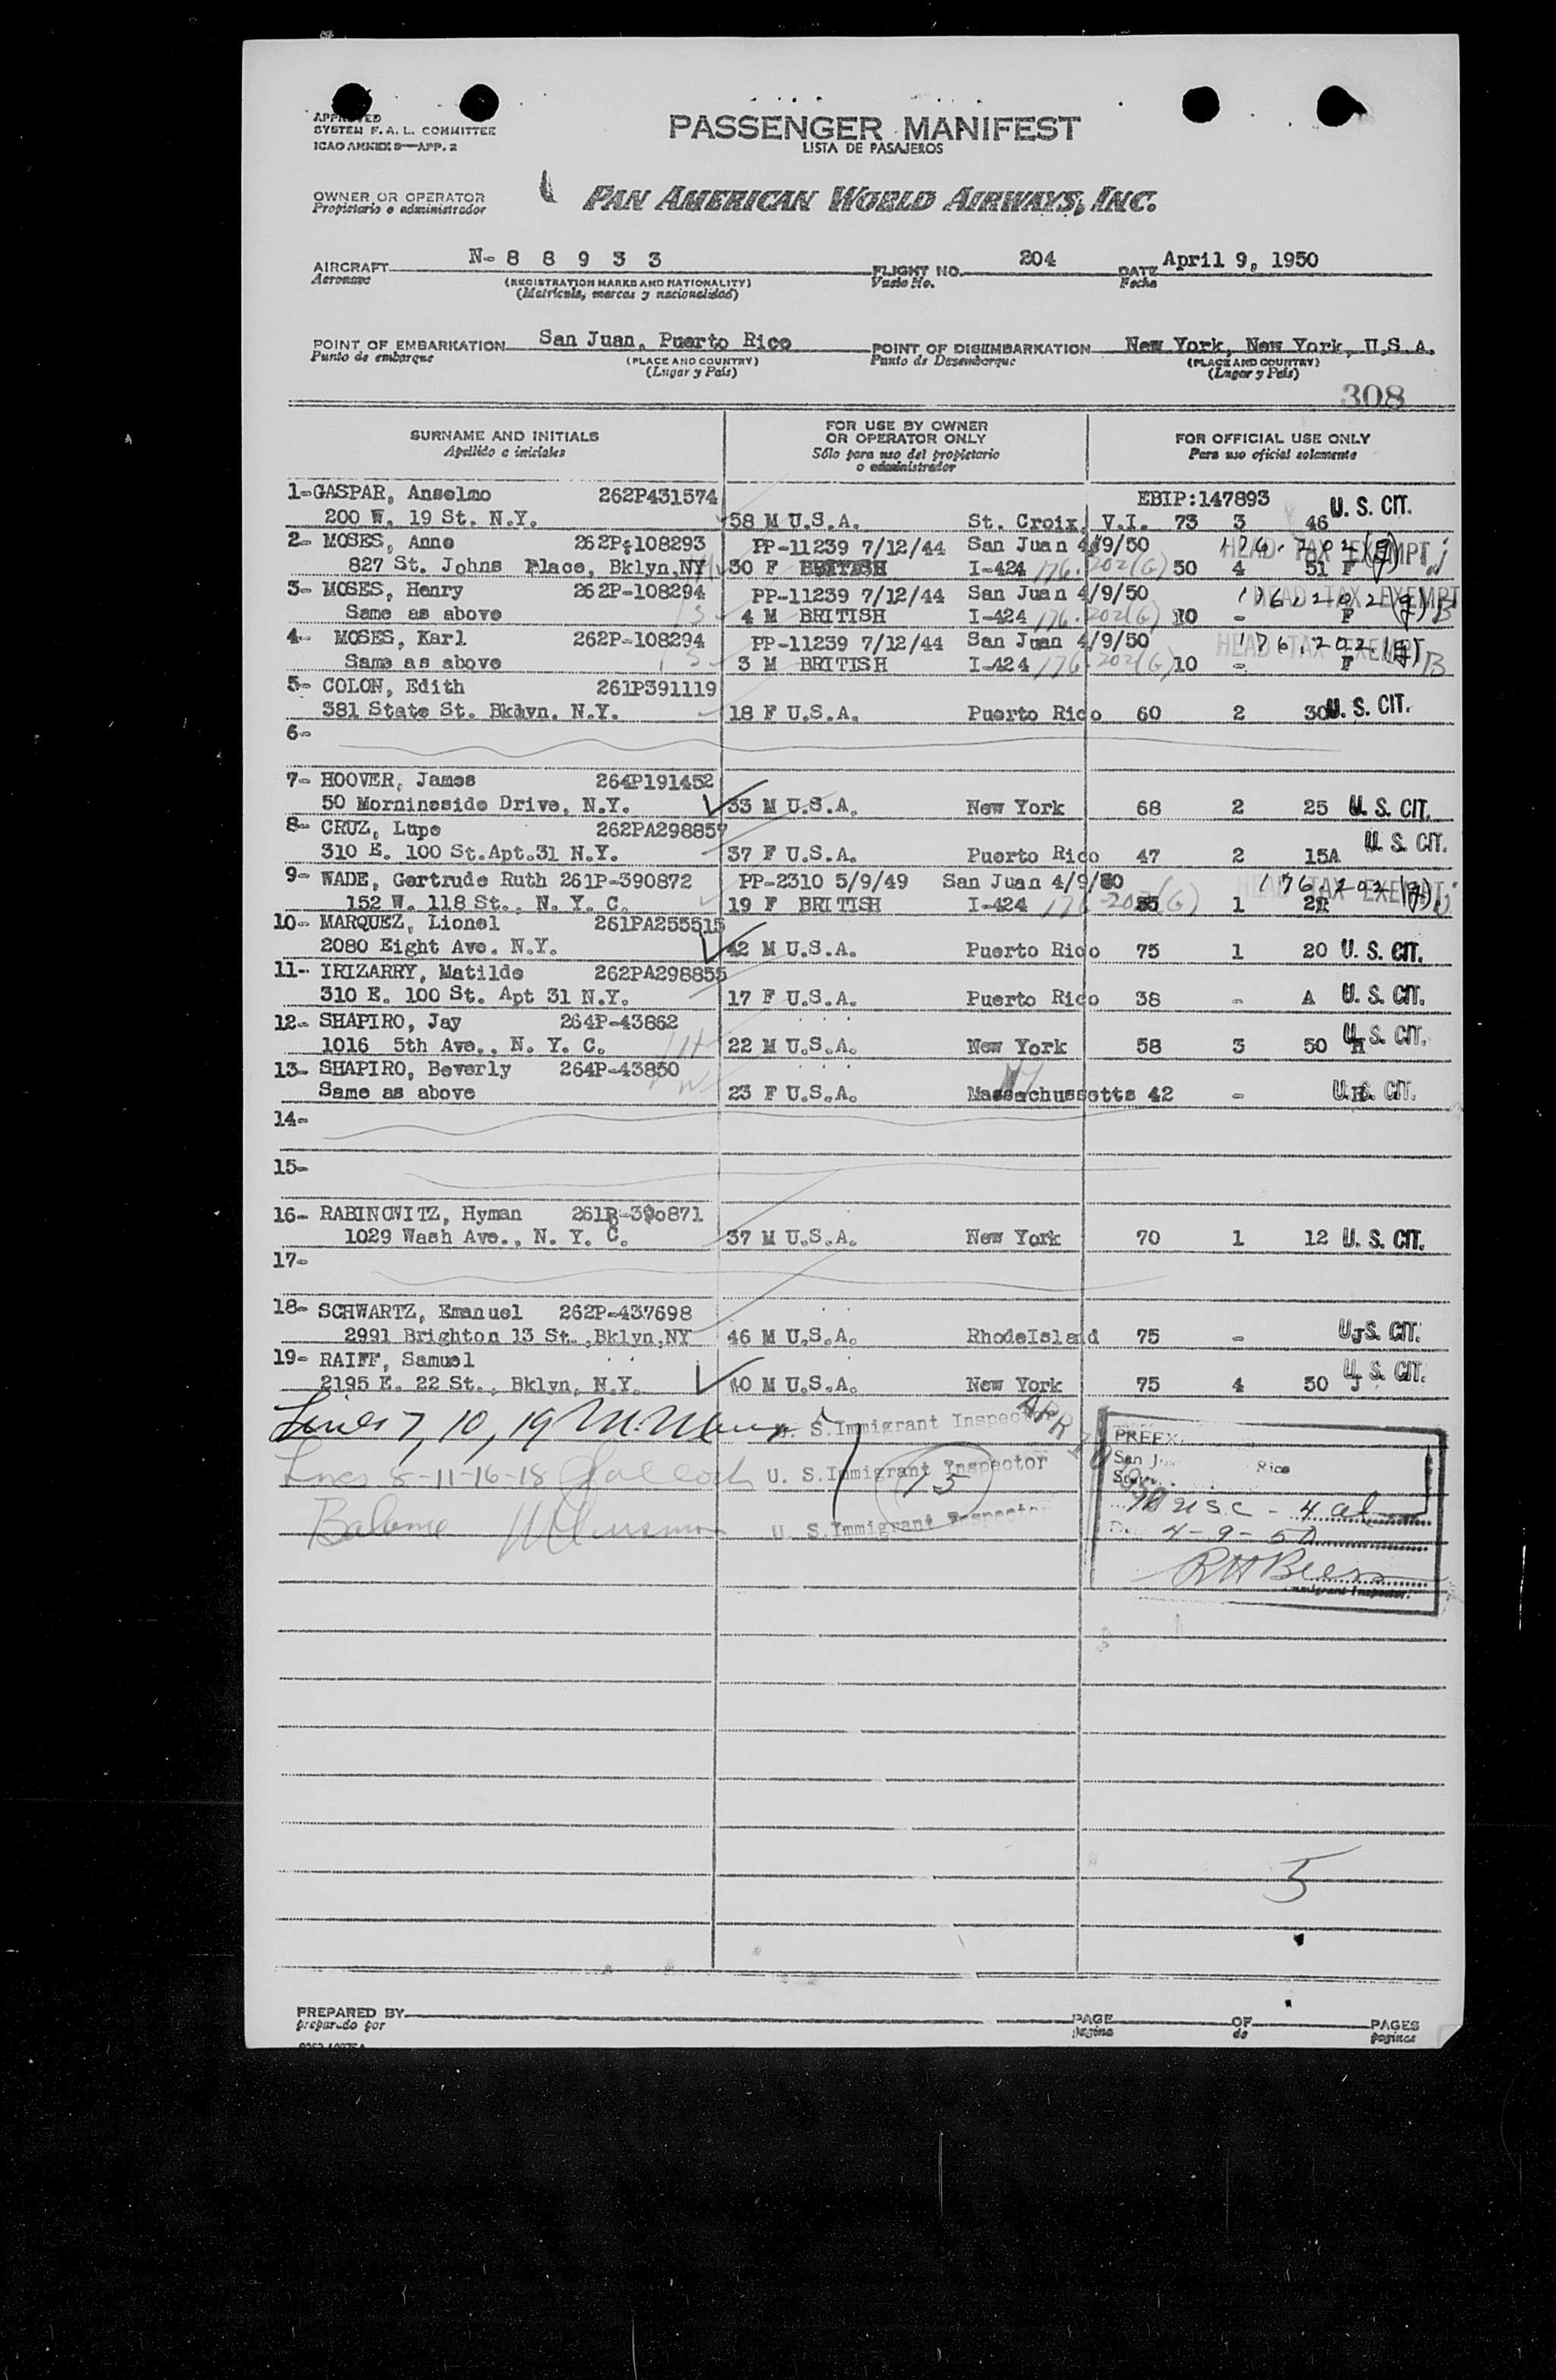 APPROVED
SYSTEM F. A. L. COMMITTEE
ICAO ANNEX 9—APP. 2
PASSENGER MANIFEST
LISTA DE PASAJEROS
OWNER OR OPERATOR
Propietario o administrador
PAN AMERICAN WORLD AIRWAYS, INC.
AIRCRAFT N- 8 8 9 3 3 FLIGHT NO. 204 DATE April 9, 1950
Aeronave (REGISTRATION MARKS AND NATIONALITY) Vuelo No. Fecha
(Matrícula, marcas y nacionalidad)
POINT OF EMBARKATION San Juan, Puerto Rico POINT OF DISEMBARKATION New York, New York, U.S.A.
Punto de embarque (PLACE AND COUNTRY) Punto de Desembarque (PLACE AND COUNTRY)
(Lugar y País) (Lugar y País)
308
SURNAME AND INITIALS FOR USE BY OWNER OR OPERATOR ONLY FOR OFFICIAL USE ONLY
Apellido e iniciales Sólo para uso del propietario o administrador Para uso oficial solamente
1-GASPAR, Anselmo 262P431574 EBIP:147893
200 W. 19 St. N.Y. 58 M U.S.A. St. Croix, V.I. 73 3 46 U. S. CIT.
2- MOSES, Anne 262P-108293 PP-11239 7/12/44 San Juan 4/9/50 HEAD TAX EXEMPT
827 St. Johns Place, Bklyn,NY 30 F BRITISH I-424 176.202(G) 50 4 51 F
3- MOSES, Henry 262P-108294 PP-11239 7/12/44 San Juan 4/9/50 HEAD TAX EXEMPT
Same as above 4 M BRITISH I-424 176.202(G) 10 - F B
4- MOSES, Karl 262P-108294 PP-11239 7/12/44 San Juan 4/9/50 HEAD TAX EXEMPT
Same as above 3 M BRITISH I-424 176.202(G) 10 - F B
5- COLON, Edith 261P391119
381 State St. Bklyn. N.Y. 18 F U.S.A. Puerto Rico 60 2 30 U. S. CIT.
6-
7- HOOVER, James 264P191452
50 Morningside Drive, N.Y. 33 M U.S.A. New York 68 2 25 U. S. CIT.
8- CRUZ, Lupe 262PA298857
310 E. 100 St.Apt.31 N.Y. 37 F U.S.A. Puerto Rico 47 2 15A U. S. CIT.
9- WADE, Gertrude Ruth 261P-390872 PP-2310 5/9/49 San Juan 4/9/50 HEAD TAX EXEMPT
152 W. 118 St., N. Y. C. 19 F BRITISH I-424 176.202(G) 1
10- MARQUEZ, Lionel 261PA255515
2080 Eight Ave. N.Y. 42 M U.S.A. Puerto Rico 75 1 20 U. S. CIT.
11- IRIZARRY, Matilde 262PA298855
310 E. 100 St. Apt 31 N.Y. 17 F U.S.A. Puerto Rico 38 - A U. S. CIT.
12- SHAPIRO, Jay 264P-43862
1016 5th Ave., N. Y. C. 22 M U.S.A. New York 58 3 50 H U. S. CIT.
13- SHAPIRO, Beverly 264P-43850
Same as above 23 F U.S.A. Massachussetts 42 - H U. S. CIT.
14-
15-
16- RABINOWITZ, Hyman 261P-390871
1029 Wash Ave., N. Y. C. 37 M U.S.A. New York 70 1 12 U. S. CIT.
17-
18- SCHWARTZ, Emanuel 262P-437698
2991 Brighton 13 St.,Bklyn,NY 46 M U.S.A. RhodeIsland 75 - J U. S. CIT.
19- RAIFF, Samuel
2195 E. 22 St., Bklyn, N.Y. 40 M U.S.A. New York 75 4 50 J U. S. CIT.
Lines 7, 10, 19 U. S. Immigrant Inspector APR 10 1950
Lines 8-11-16-18 U. S. Immigrant Inspector 15
Balance U. S. Immigrant Inspector
PREEX
San J Rico
10 USC - 4 al
4-9-50
RH Beers
Immigrant Inspector
5
PREPARED BY PAGE OF PAGES
preparado por página de páginas